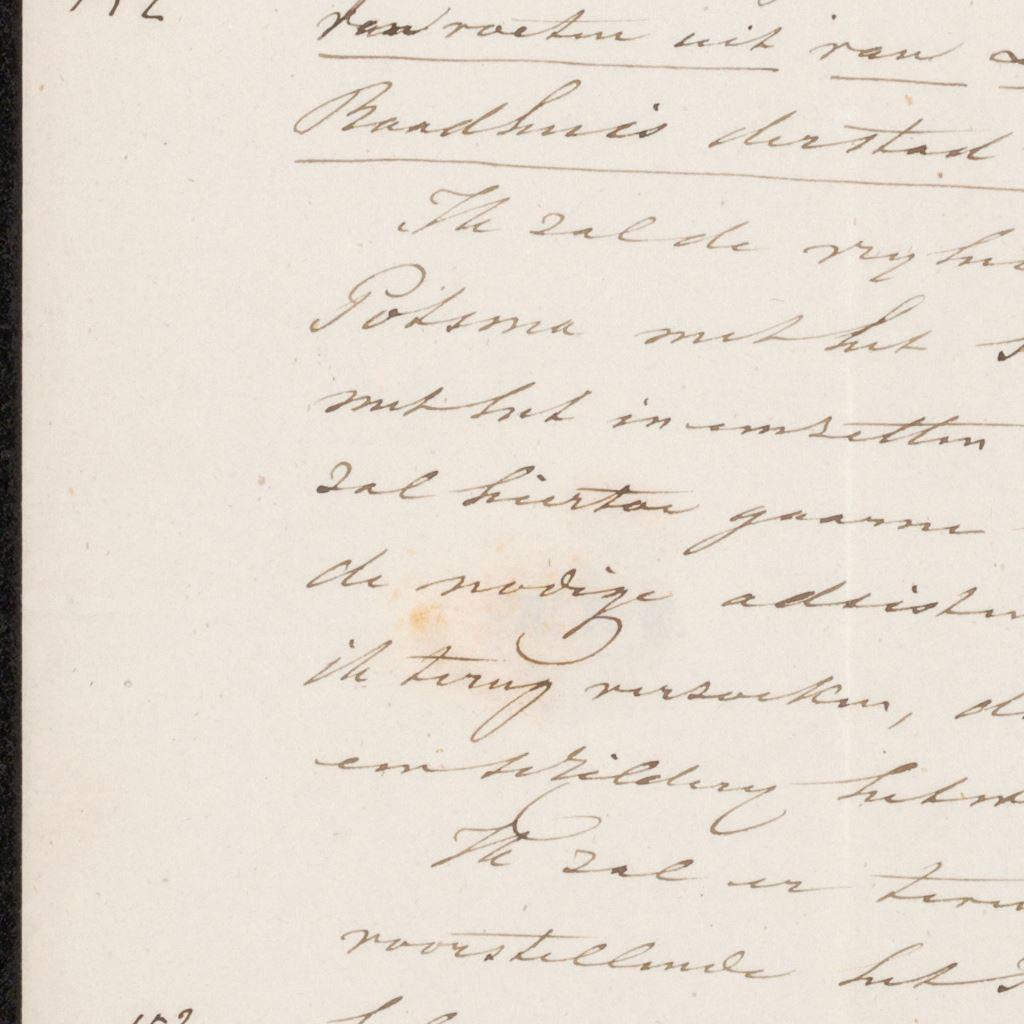 van voeten uit van
Raadhuis der stad
Ik zal de vry
Potsma met het
met het in een zetten
zal hiertoe gaarne
de nodige adsisten
ik terug versoeken,
een schildery het
Ik zal er teru
voorstellende het